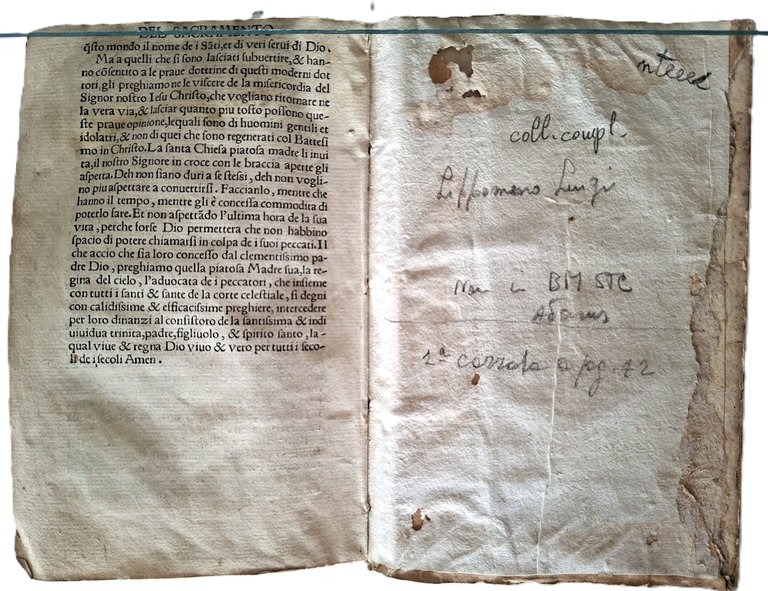 DEL SACRAMENTO
q̃sto mondo il nome de i Sãti, et di veri serui di Dio.
Ma a quelli che si sono lasciati subuertire, & han-
no cõsenuto a le praue dottrine di questi moderni dot
tori, gli preghiamo ne le viscere de la misericordia del
Signor nostro Iesu Christo, che vogliano ritornare ne
la vera via, & lasciar quanto piu tosto possono que-
ste praue opinione, lequali sono di huomini gentili et
idolatri, & non di quei che sono regenerati col Battesi
mo in Christo. La santa Chiesa piatosa madre li inui
ta, il nostro Signore in croce con le braccia aperte gli
aspetta. Deh non siano duri a se stessi, deh non vogli-
no piu aspettare a conuertirsi. Faccianlo, mentre che
hanno il tempo, mentre gli è concessa commodita di
poterlo fare. Et non aspettãdo l'ultima hora de la sua
vita, perche forse Dio permettera che non habbino
spacio di potere chiamarsi in colpa de i suoi peccati. Il
che accio che sia loro concesso dal clementissimo pa
dre Dio, preghiamo quella piatosa Madre sua, la re
gina del cielo, l'aduocata de i peccatori, che insieme
con tutti i santi & sante de la corte celestiale, si degni
con calidissime & efficacissime preghiere, intercedere
per loro dinanzi al consistoro de la santissima & indi
uiuidua trinita, padre, figliuolo, & spirito santo, la-
qual viue & regna Dio viuo & vero per tutti i seco-
li de i secoli Amen.
coll. compl.
Lippomano Luigi
Non in BM STC
Adams
1ª corrola a pg. 42